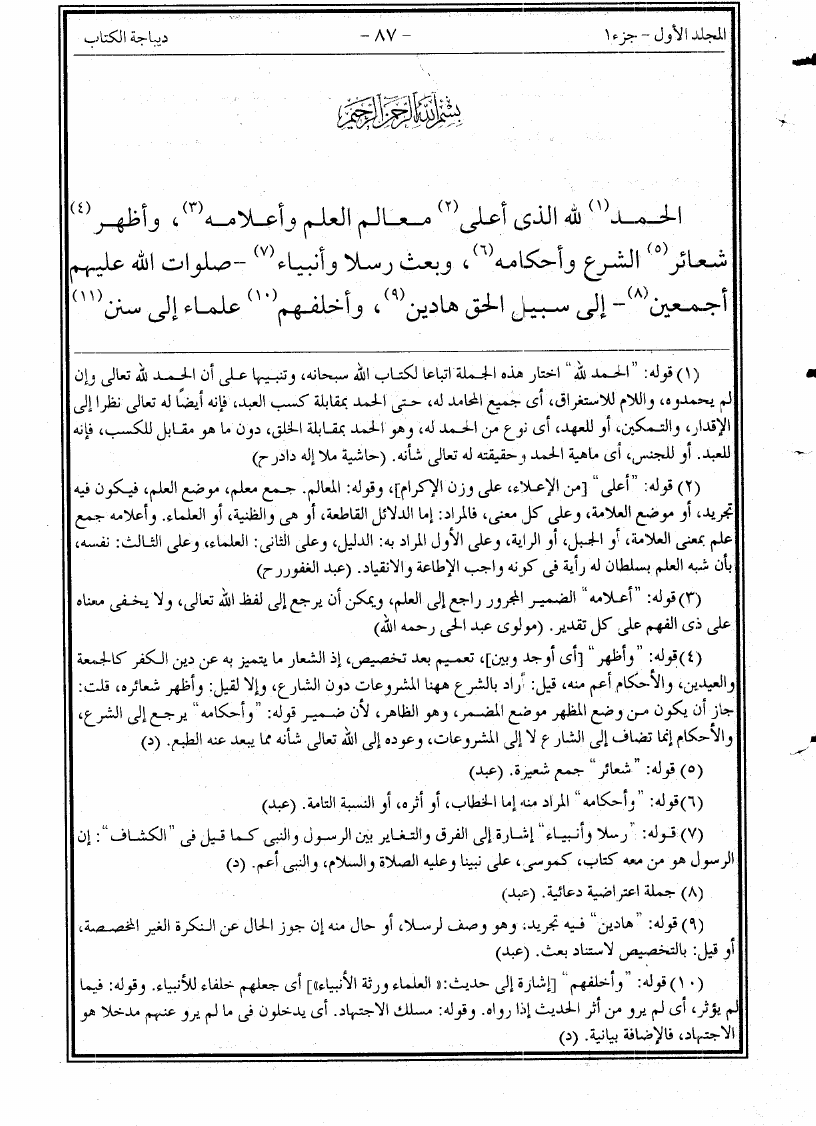 المجلد الأول - جزء١ - ٨٧ - ديباجة الكتاب
بسم الله الرحمن الرحيم
الحمد(١) لله الذى أعلى(٢) معالم العلم وأعلامه(٣)، وأظهر(٤)
شعائر(٥) الشرع وأحكامه(٦)، وبعث رسلا وأنبياء(٧) -صلوات الله عليهم
أجمعين(٨)- إلى سبيل الحق هادين(٩)، وأخلفهم(١٠) علماء إلى سنن(١١)
(١) قوله: "الحمد لله" اختار هذه الجملة اتباعا لكتاب الله سبحانه، وتنبيها على أن الحمد لله تعالى وإن
لم يحمدوه، واللام للاستغراق، أى جميع المحامد له، حتى الحمد بمقابلة كسب العبد، فإنه أيضًا له تعالى نظرا إلى
الإقدار، والتمكين، أو للعهد، أى نوع من الحمد له، وهو الحمد بمقابلة الخلق، دون ما هو مقابل للكسب، فإنه
للعبد. أو للجنس، أى ماهية الحمد وحقيقته له تعالى شأنه. (حاشية ملا إله دادرح)
(٢) قوله: "أعلى" [من الإعلاء، على وزن الإكرام]، وقوله: المعالم. جمع معلم، موضع العلم، فيكون فيه
تجريد، أو موضع العلامة، وعلى كل معنى، فالمراد: إما الدلائل القاطعة، أو هى والظنية، أو العلماء. وأعلامه جمع
علم بمعنى العلامة، أو الجبل، أو الراية، وعلى الأول المراد به: الدليل، وعلى الثانى: العلماء، وعلى الثالث: نفسه،
بأن شبه العلم بسلطان له رأية فى كونه واجب الإطاعة والانقياد. (عبد الغفوررح)
(٣) قوله: "أعلامه" الضمير المجرور راجع إلى العلم، ويمكن أن يرجع إلى لفظ الله تعالى، ولا يخفى معناه
على ذى الفهم على كل تقدير. (مولوى عبد الحى رحمه الله)
(٤) قوله: "وأظهر" [أى أوجد وبين]، تعميم بعد تخصيص، إذ الشعار ما يتميز به عن دين الكفر كالجمعة
والعيدين، والأحكام أعم منه، قيل: أراد بالشرع ههنا المشروعات دون الشارع، وإلا لقيل: وأظهر شعائره، قلت:
جاز أن يكون من وضع المظهر موضع المضمر، وهو الظاهر، لأن ضمير قوله: "وأحكامه" يرجع إلى الشرع،
والأحكام إنما تضاف إلى الشارع لا إلى المشروعات، وعوده إلى الله تعالى شأنه مما يبعد عنه الطبع. (د)
(٥) قوله: "شعائر" جمع شعيرة. (عبد)
(٦) قوله: "وأحكامه" المراد منه إما الخطاب، أو أثره، أو النسبة التامة. (عبد)
(٧) قوله: "رسلا وأنبياء" إشارة إلى الفرق والتغاير بين الرسول والنبى كما قيل فى "الكشاف": إن
الرسول هو من معه كتاب، كموسى، على نبينا وعليه الصلاة والسلام، والنبى أعم. (د)
(٨) جملة اعتراضية دعائية. (عبد)
(٩) قوله: "هادين" فيه تجريد، وهو وصف لرسلا، أو حال منه إن جوز الحال عن النكرة الغير المخصصة،
أو قيل: بالتخصيص لاستناد بعث. (عبد)
(١٠) قوله: "وأخلفهم" [إشارة إلى حديث: «العلماء ورثة الأنبياء»] أى جعلهم خلفاء للأنبياء. وقوله: فيما
لم يؤثر، أى لم يرو من أثر الحديث إذا رواه. وقوله: مسلك الاجتهاد. أى يدخلون فى ما لم يرو عنهم مدخلا هو
الاجتهاد، فالإضافة بيانية. (د)